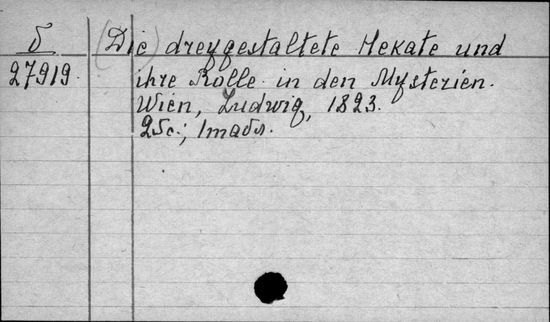 δ
27919
(Die) dreygestaltete Hekate und
ihre Rolle in den Mysterien.
Wien, Ludwig, 1823.
25c.;